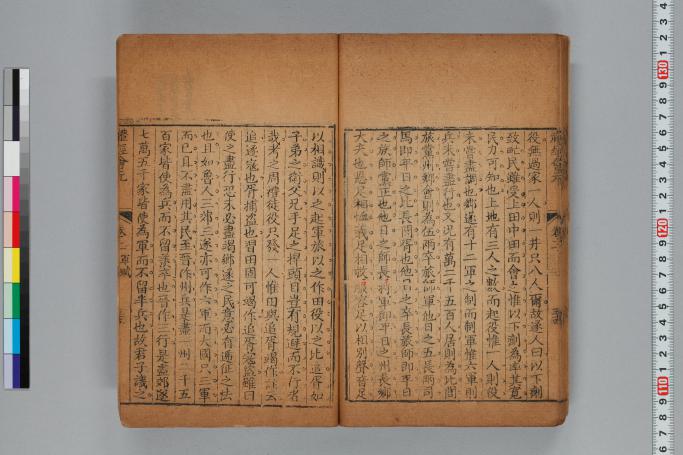 役無過家一人則一井只八人爾故遂人曰以下劑
致甿民雖受上田中田而會之惟以下劑為率其寛
民力可知也上地有三人之數而起役惟一人則役
未嘗盡調也鄉遂有十二軍之制而制軍惟六軍則
兵未嘗盡行也又況有萬二千五百人居則為比閭
族黨州鄉會則為伍兩卒旅師軍他日之五長兩司
馬即平日之比長閭胥也他日之卒長旅師即平日
之族師黨正也他日之師長將軍即平日之州長鄉
大夫也恩足相恤義足相救服容足以相別聲音足
以相識則以之起軍旅以之作田役以之比追胥如
子弟之衛父兄手足之捍頭目豈有規避而不行者
哉考之周禮徒役只發一人惟田與追胥竭作註云
追逐寇也胥捕盜也習田固可竭作追胥寇盜雖曰
使之盡行恐未必盡竭鄉遂之民意必有遞征之法
也且如魯人三郊三遂亦可作六軍而大國只三軍
而已且不盡用其民至晉作州兵是盡一州二千五
百家皆使為兵而不留羨卒也晉作三行是盡郊遂
七萬五千家皆使為軍而不留半兵也故君子譏之
禮經會元
卷二 軍賦